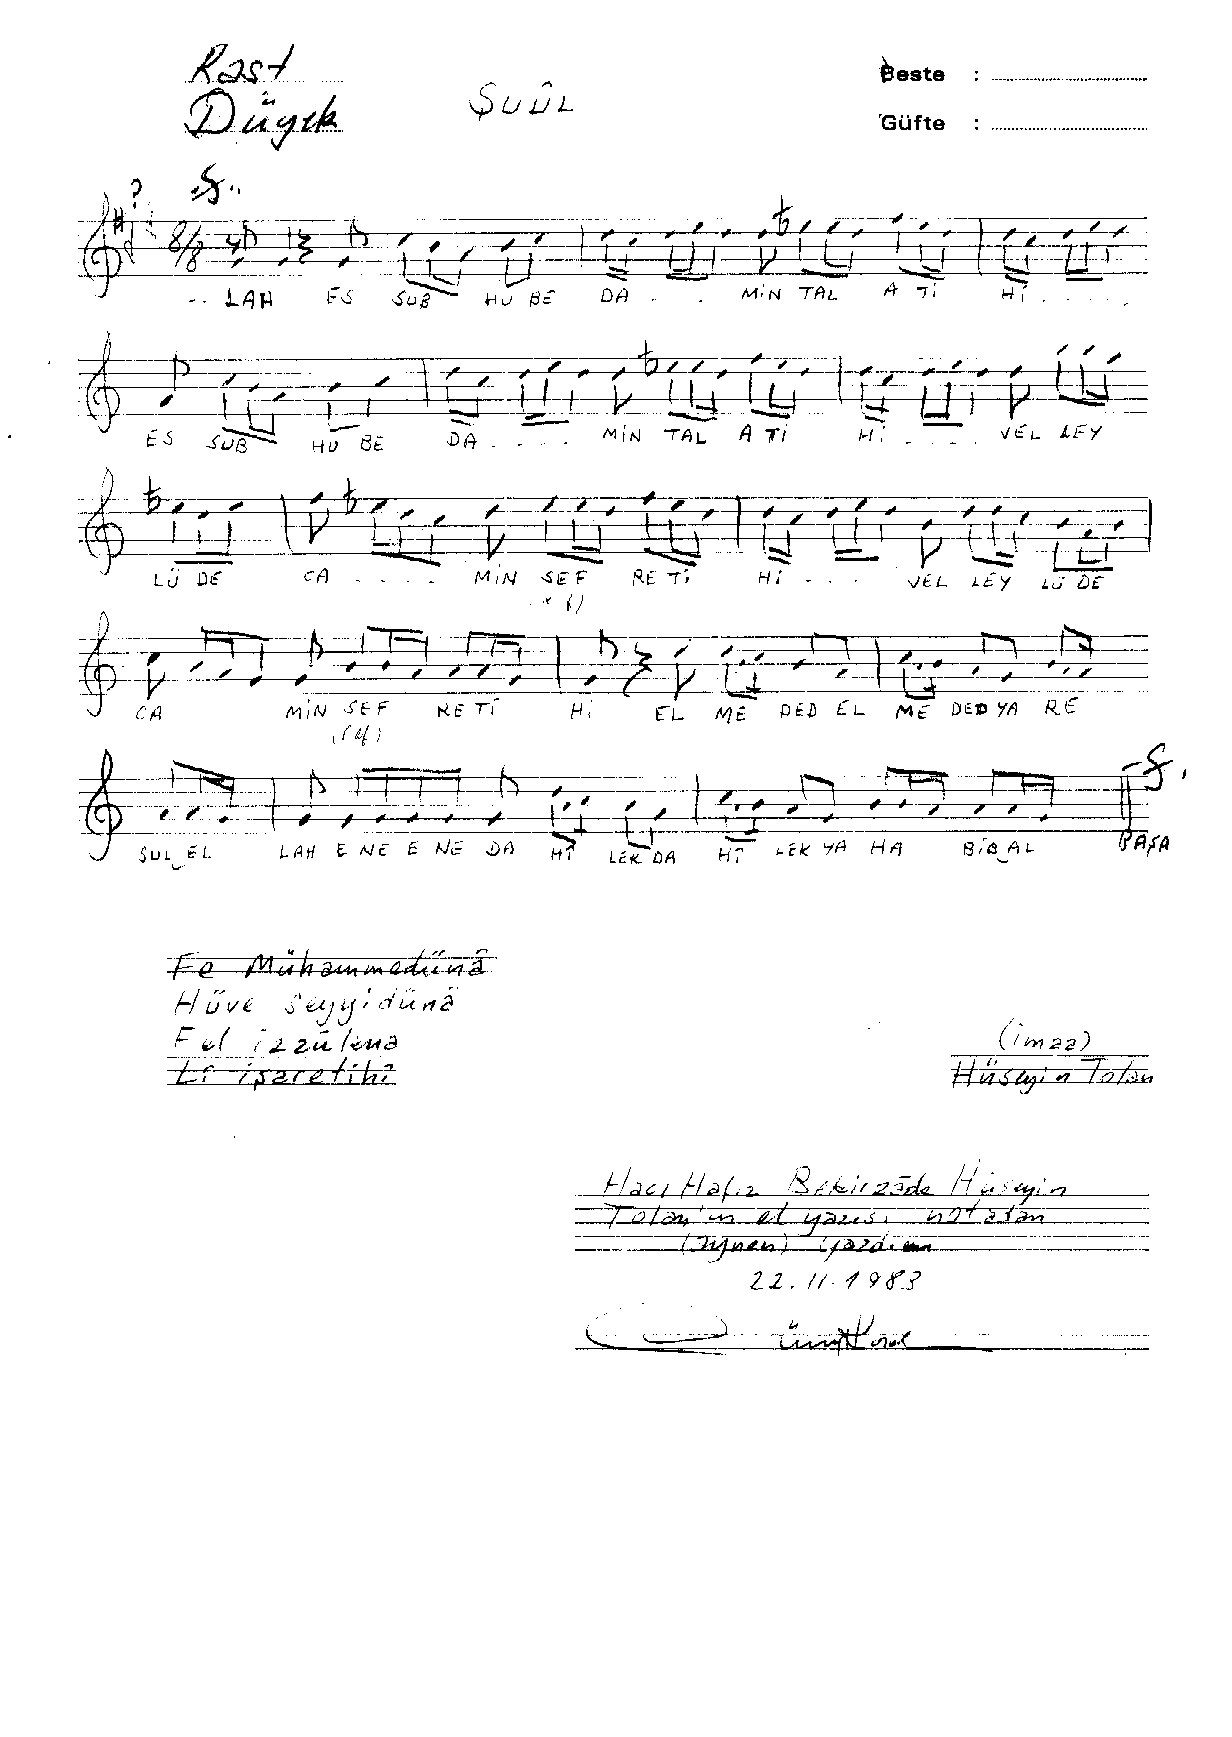 Rast
Düyek
ŞUÛL
Beste :
Güfte :
?
8/8
.. LAH ES SUB HU BE DA . . MİN TAL A Tİ Hİ . . . . .
ES SUB HU BE DA . . . . MİN TAL A Tİ Hİ . . . . VEL LEY
LÜ DE CA . . . . . MİN SEF RE Tİ Hİ . . . VEL LEY LÜ DE
CA MİN SEF RE Tİ Hİ EL ME DED EL ME DED YA RE
SUL EL LAH E NE E NE DA Hİ LEK DA Hİ LEK YA HA BİB AL BAŞA
Fe Mühammedünâ
Hüve seyyidünâ
Fel izzülena
Li işaretihî
(imza)
Hüseyin Tolan
Hacı Hafız Bekirzâde Hüseyin
Tolan'ın el yazısı notadan
(Aynen) yazdım
22.11.1983